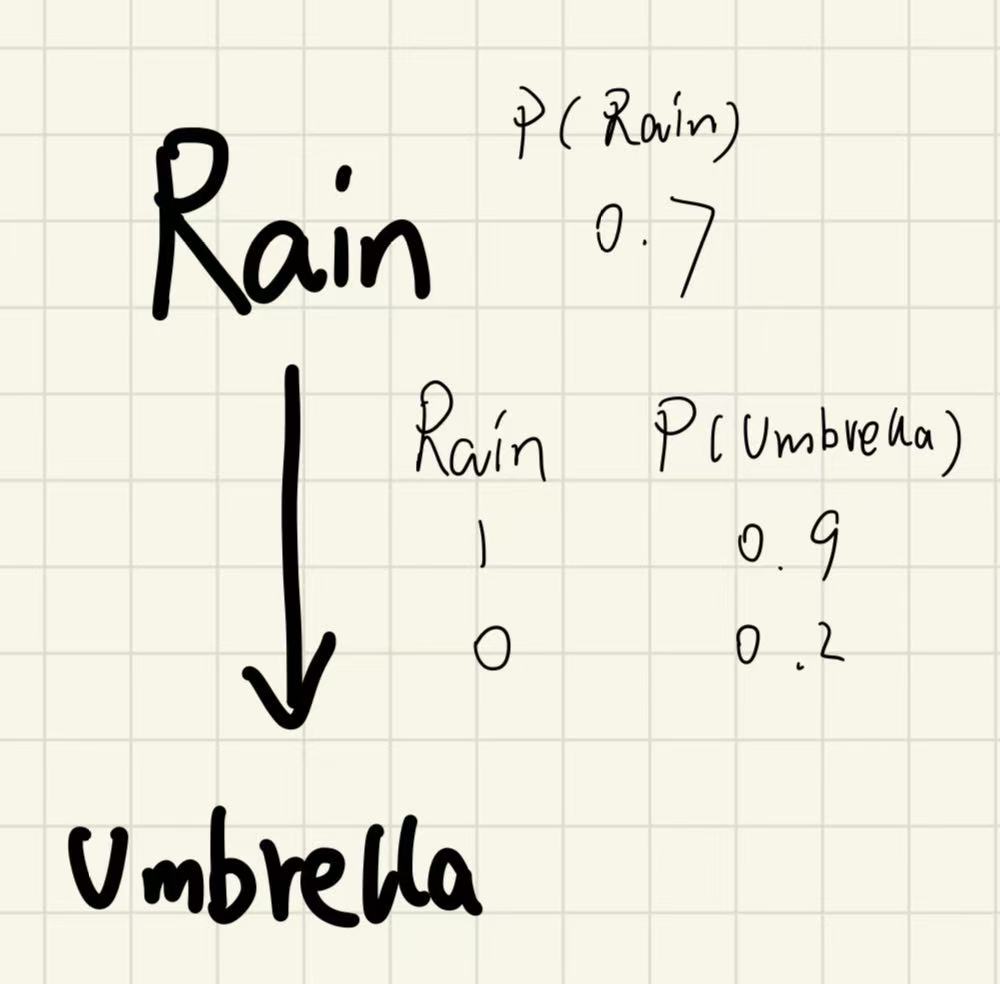 P(Rain)
Rain
0.7
Rain P(Umbrella)
1 0.9
0 0.2
Umbrella